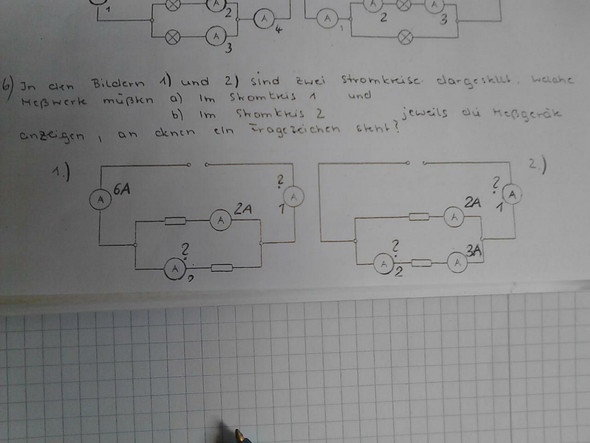 1 A 2 A A 4 A 1 A 2 A 3
A 3
6) In den Bildern 1) und 2) sind zwei Stromkreise dargestellt. Welche
Meßwerte müßten a) Im Stromkreis 1 und
b) Im Stromkreis 2 jeweils die Meßgeräte
anzeigen, an denen ein Fragezeichen steht?
1.) 2.)
A 6A ? A 1 ? A 1
A 2A A 2A
? A 2 ? A 2 A 3A